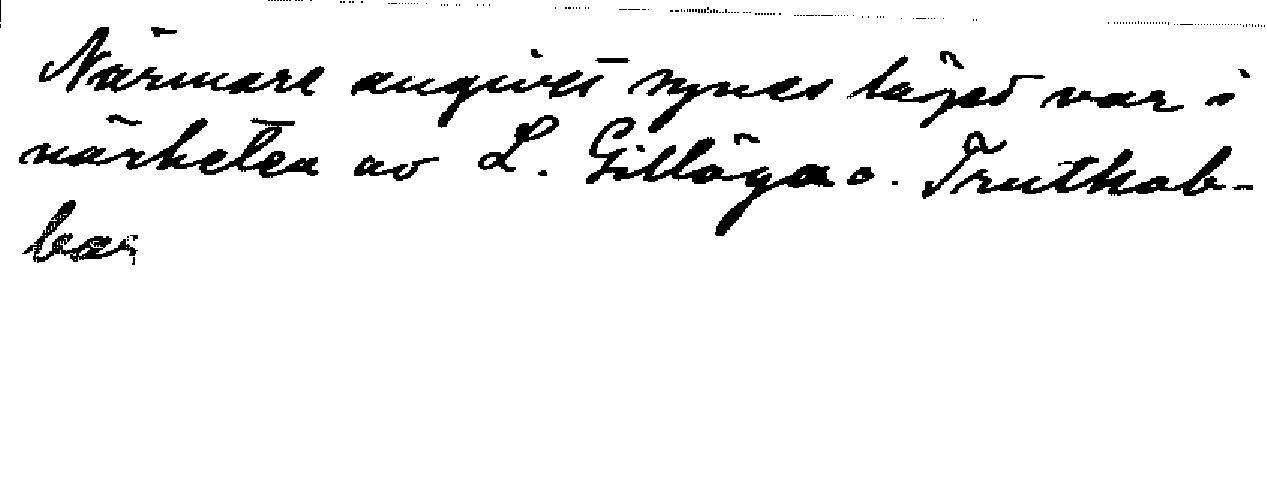 Närmare angivet synes läget var i
närheten av L. Gillöga o. Trutkob-
bar